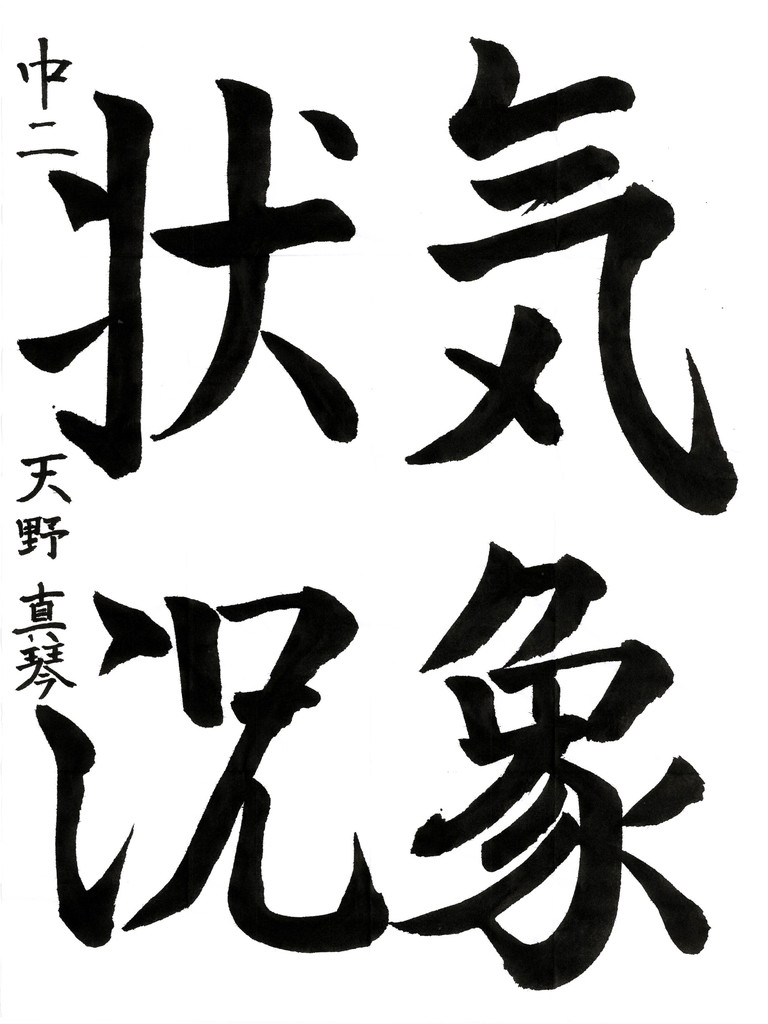 気象
状況
中二 天野真琴